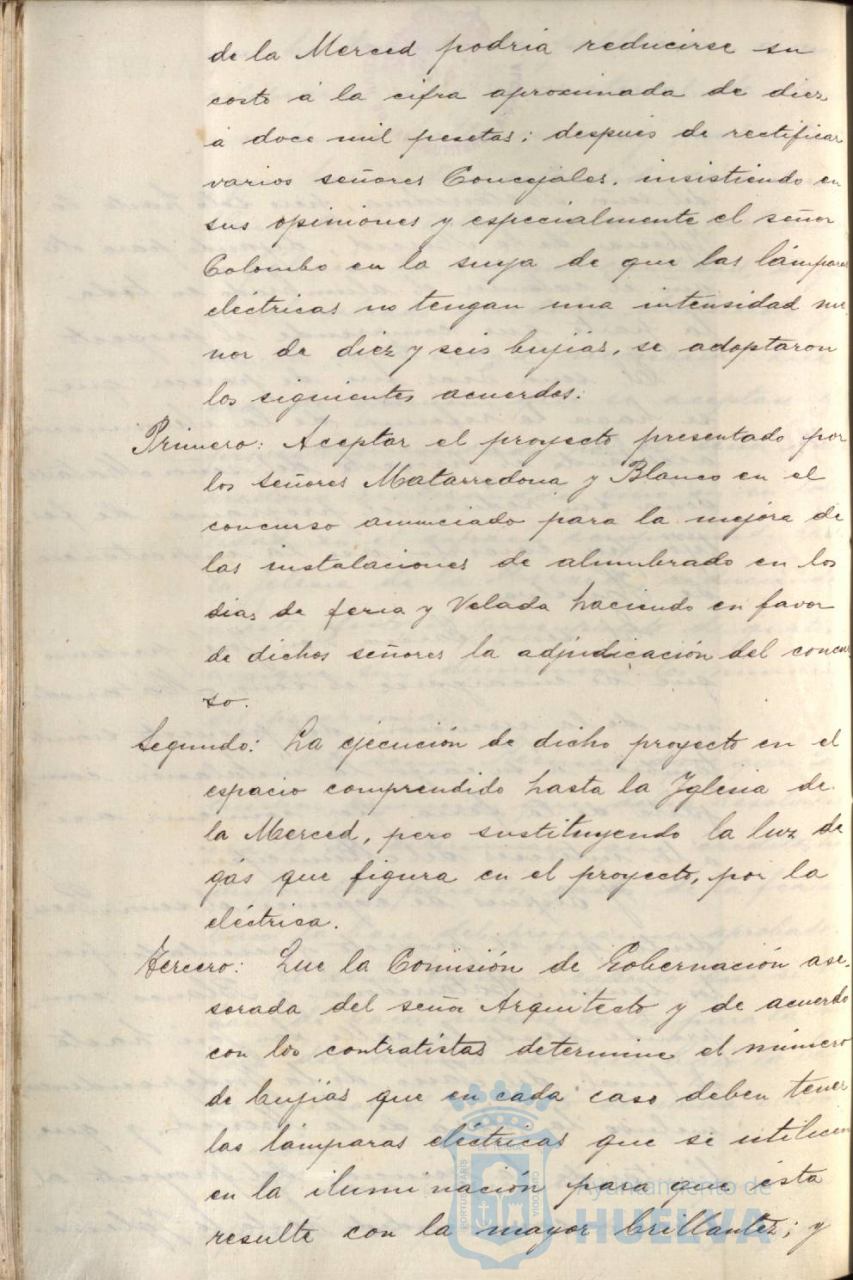 de la Merced podría reducirse su
costo á la cifra aproximada de diez
á doce mil pesetas; después de rectificar
varios señores Concejales, insistiendo en
sus opiniones y especialmente el señor
Colombo en la suya de que las lámparas
eléctricas no tengan una intensidad me-
nor de diez y seis bujías, se adoptaron
los siguientes acuerdos:
Primero: Aceptar el proyecto presentado por
los señores Matarredona y Blanco en el
concurso anunciado para la mejora de
las instalaciones de alumbrado en los
dias de feria y Velada haciendo en favor
de dichos señores la adjudicación del concur-
so.
Segundo: La ejecución de dicho proyecto en el
espacio comprendido hasta la Yglesia de
la Merced, pero sustituyendo la luz de
gás que figura en el proyecto, por la
eléctrica.
Tercero: Que la Comisión de Gobernación ase-
sorada del señor Arquitecto y de acuerdo
con los contratistas determine el número
de bujías que en cada caso deben tener
las lámparas eléctricas que se utilicen
en la iluminación para que ésta
resulte con la mayor brillantez; y
Ayuntamiento de
HUELVA